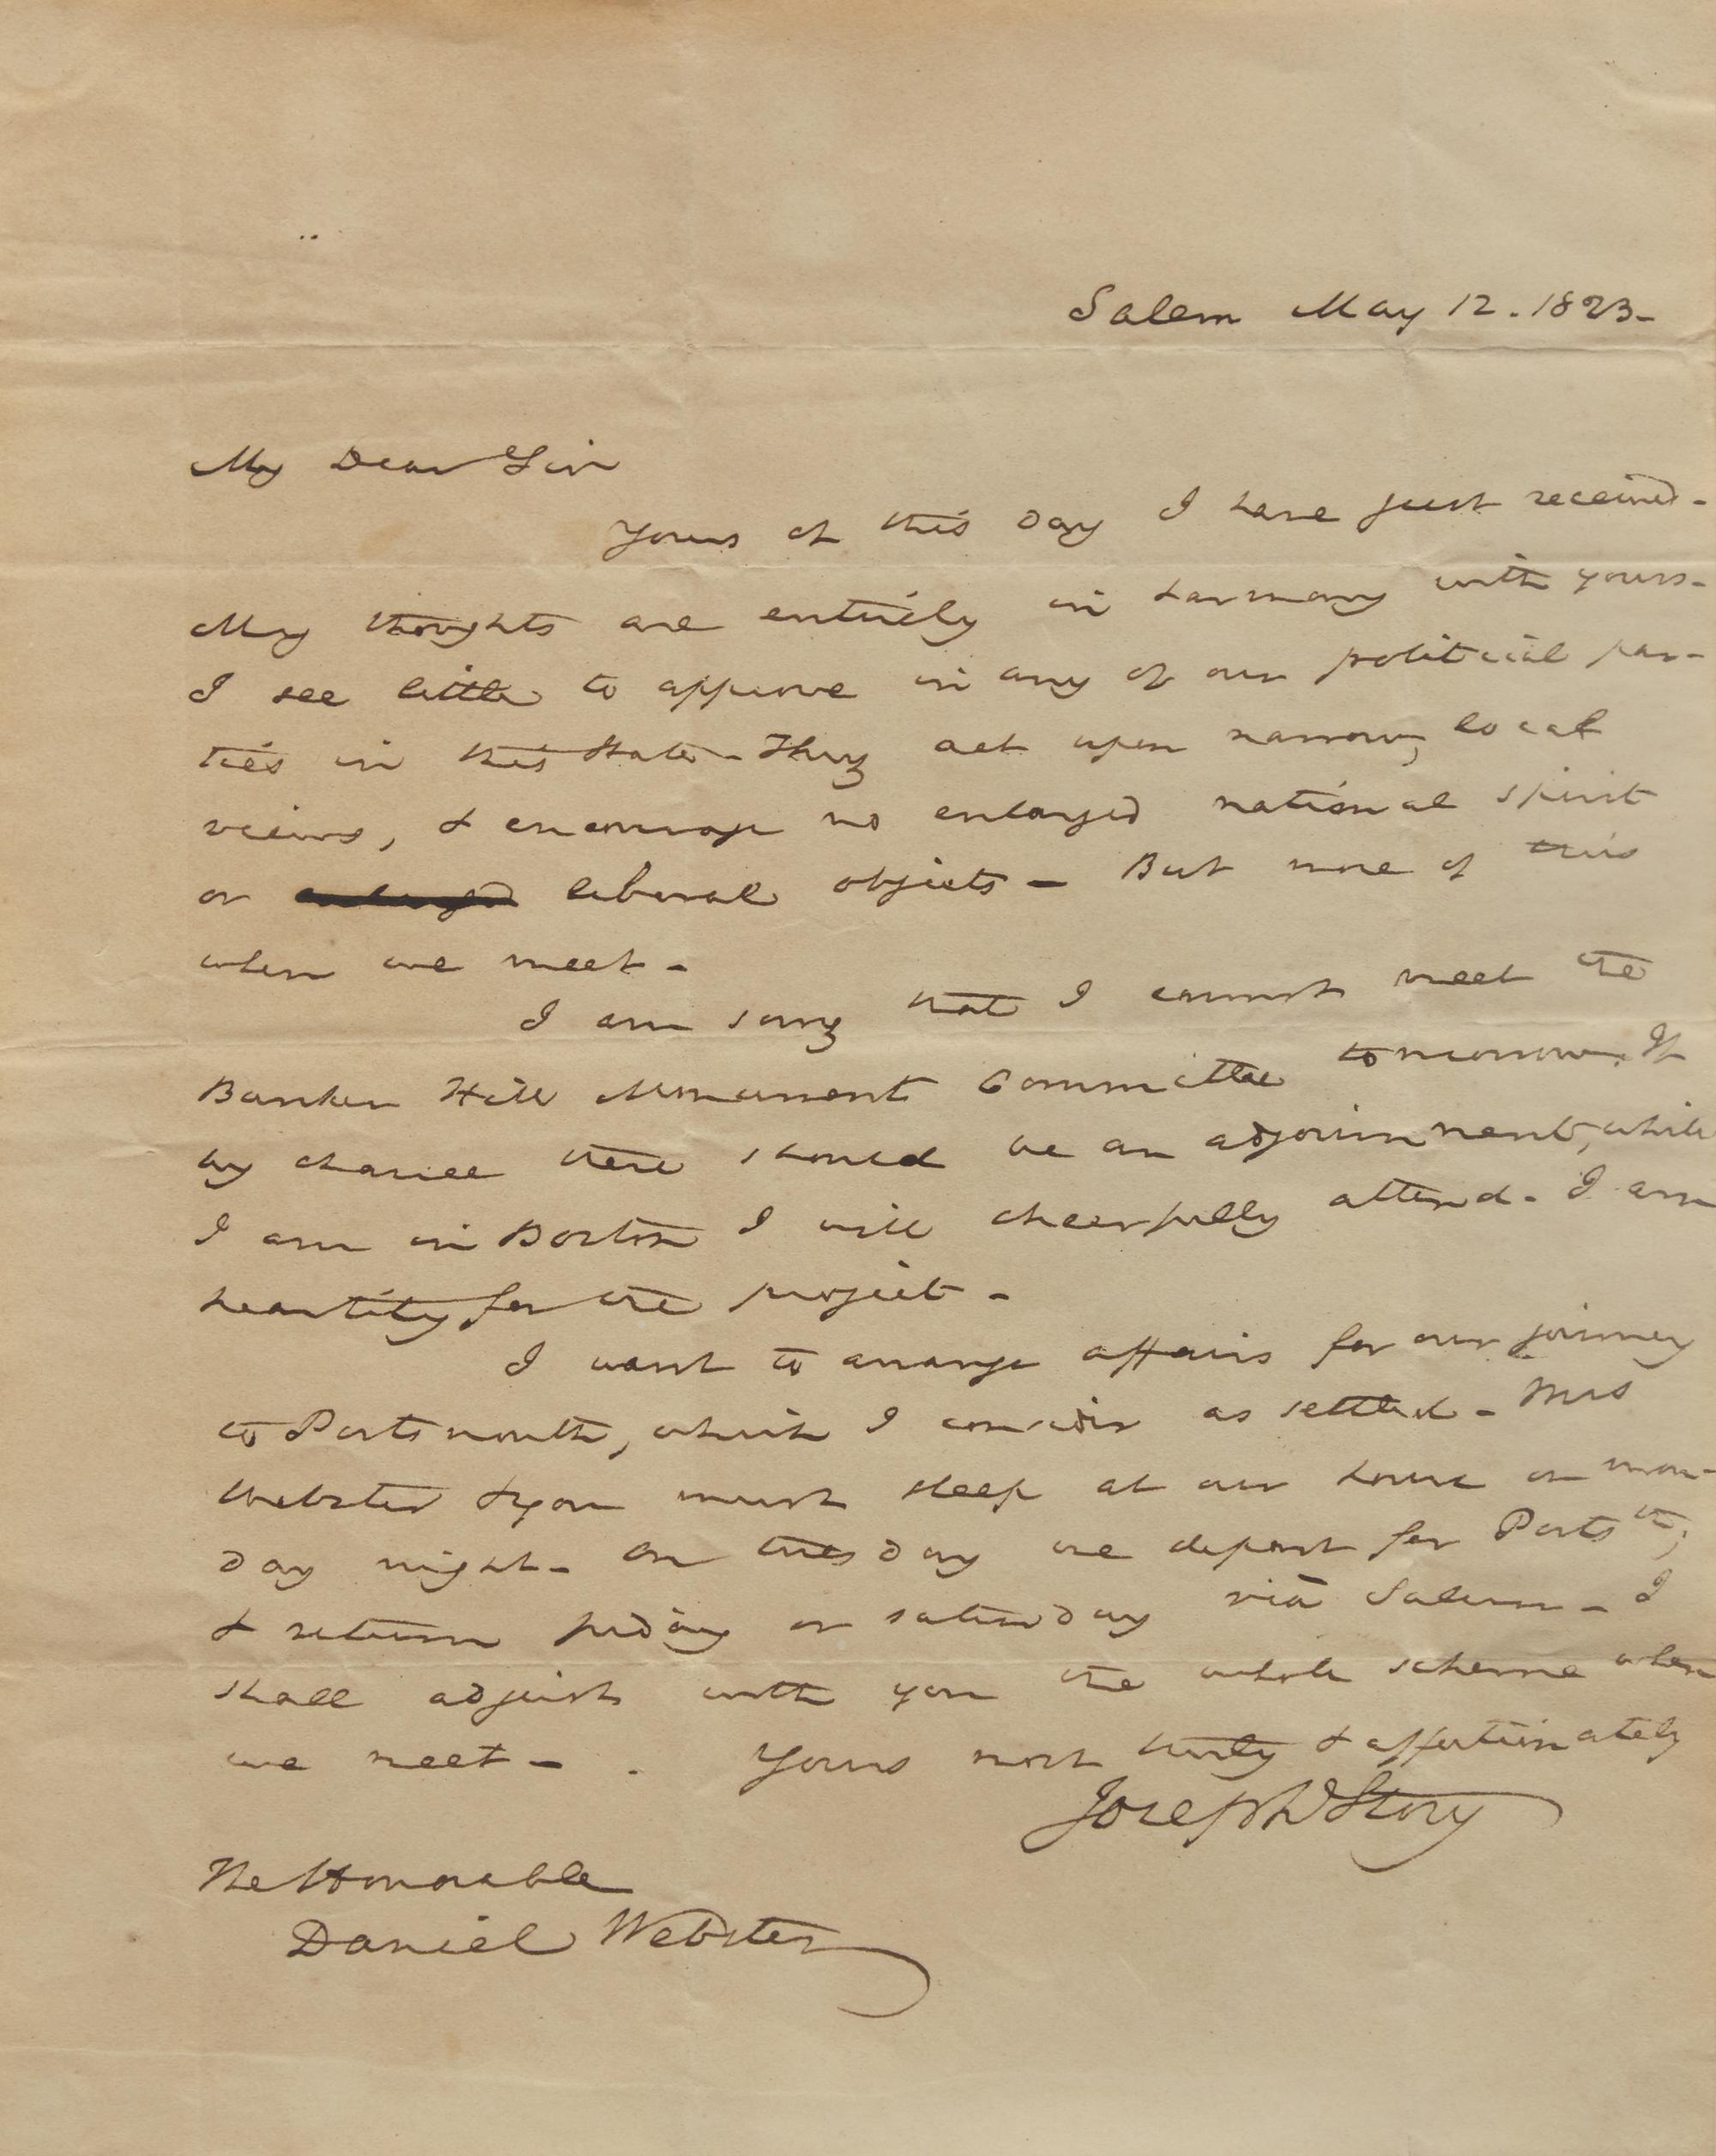 Salem May 12. 1823-
My Dear Sir
Yours of this day I have just received-
My thoughts are entirely in harmony with yours-
I see little to approve in any of our political par-
ties in this State - They act upon narrow, local
views, & encourage no enlarged national spirit
or enlarged liberal objects - But more of this
when we meet -
I am sorry that I cannot meet the
Bunker Hill Monument Committee tomorrow. If
by chance there should be an adjournment, while
I am in Boston I will cheerfully attend - I am
heartily for the project -
I want to arrange affairs for our journey
to Portsmouth, which I consider as settled - Mrs
Webster & you must sleep at our house on mon-
day night - On tuesday we depart for Ports th;
& return friday or saturday via Salem - I
shall adjust with you the whole scheme when
we meet - . Yours most truly & affectionately
Joseph Story
The Honorable
Daniel Webster